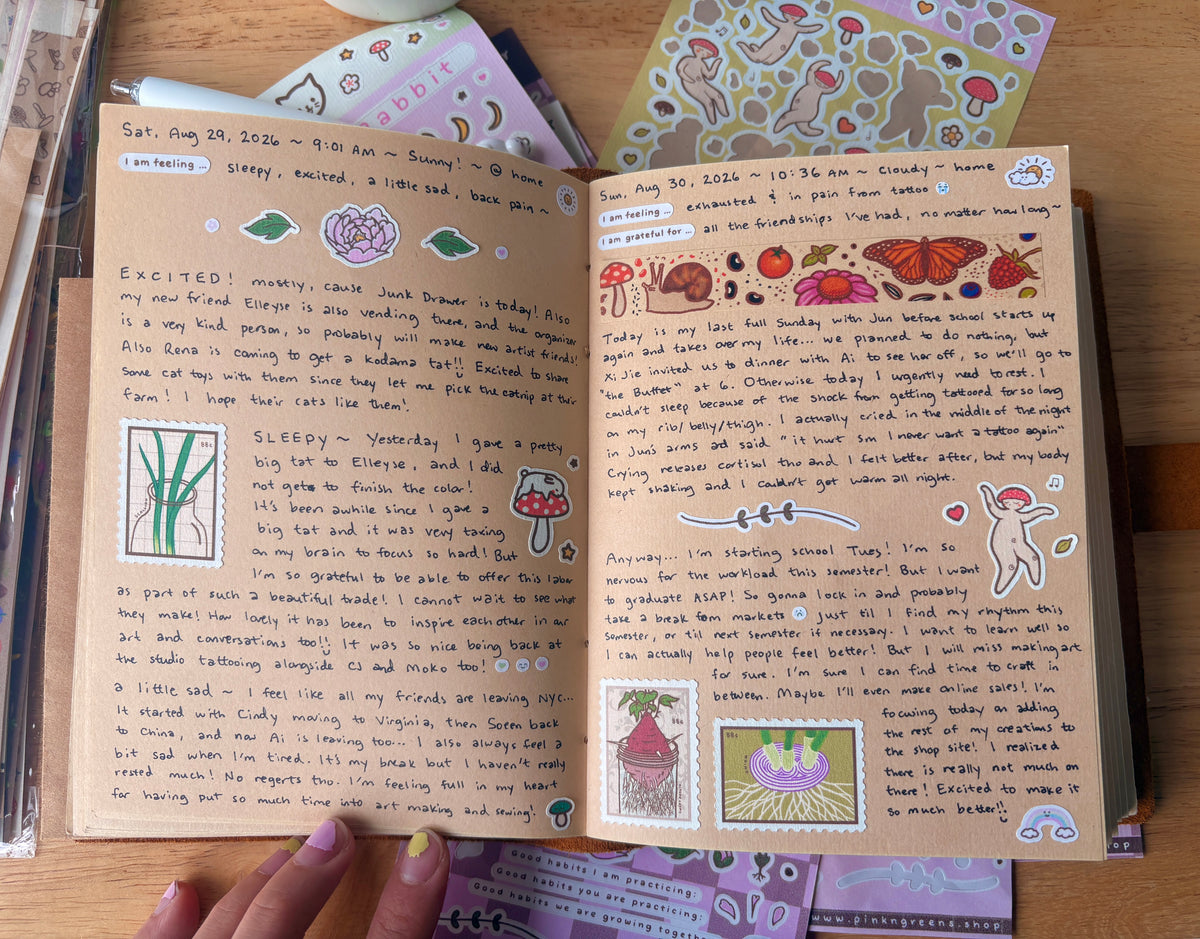 rabbit
Sat, Aug 29, 2026 ~ 9:01 AM ~ Sunny! ~ @ home
I am feeling ... sleepy, excited, a little sad, back pain ~
EXCITED! mostly, cause Junk Drawer is today! Also
my new friend Elleyse is also vending there, and the organizer
is a very kind person, so probably will make new artist friends!
Also Rena is coming to get a kodama tat!! Excited to share
some cat toys with them since they let me pick the catnip at their
farm! I hope their cats like them!
88¢
SLEEPY ~ Yesterday I gave a pretty
big tat to Elleyse, and I did
not get to finish the color!
It's been awhile since I gave a
big tat and it was very taxing
on my brain to focus so hard! But
I'm so grateful to be able to offer this labor
as part of such a beautiful trade! I cannot wait to see what
they make! How lovely it has been to inspire each other in our
art and conversations too!! It was so nice being back at
the studio tattooing alongside CJ and Moko too!
a little sad ~ I feel like all my friends are leaving NYC...
It started with Cindy moving to Virginia, then Soeen back
to China, and now Ai is leaving too... I also always feel a
bit sad when I'm tired. It's my break but I haven't really
rested much! No regerts tho. I'm feeling full in my heart
for having put so much time into art making and sewing!
Sun, Aug 30, 2026 ~ 10:36 AM ~ Cloudy ~ home
I am feeling ... exhausted & in pain from tattoo
I am grateful for ... all the friendships I've had, no matter how long ~
Today is my last full Sunday with Jun before school starts up
again and takes over my life... we planned to do nothing, but
Xi Jie invited us to dinner with Ai to see her off, so we'll go to
"the Buffet" at 6. Otherwise today I urgently need to rest. I
couldn't sleep because of the shock from getting tattooed for so long
on my rib/belly/thigh. I actually cried in the middle of the night
in Jun's arms and said "it hurt sm I never want a tattoo again"
Crying releases cortisol tho and I felt better after, but my body
kept shaking and I couldn't get warm all night.
Anyway... I'm starting school Tues! I'm so
nervous for the workload this semester! But I want
to graduate ASAP! So gonna lock in and probably
take a break from markets just til I find my rhythm this
semester, or til next semester if necessary. I want to learn well so
I can actually help people feel better! But I will miss making art
for sure. I'm sure I can find time to craft in
between. Maybe I'll even make online sales! I'm
focusing today on adding
the rest of my creations to
the shop site! I realized
there is really not much on
there! Excited to make it
so much better!!
88¢
88¢
Good habits I am practicing:
Good habits you are practicing:
Good habits we are growing togethe
www.pinkngreens.shop